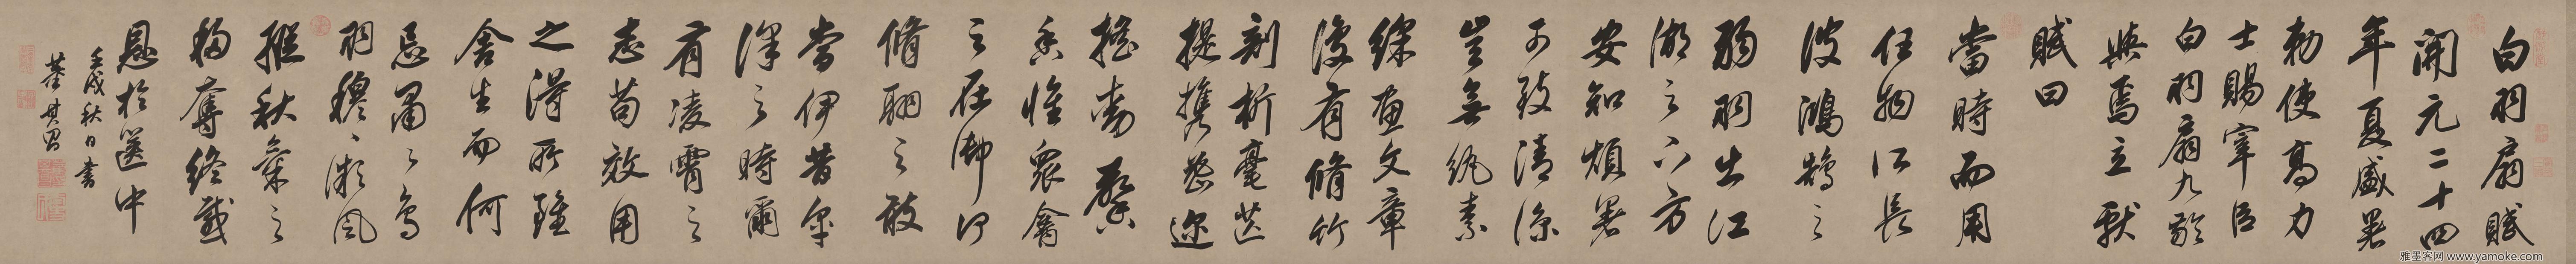 白羽扇賦
開元二十四
年夏盛暑
勅使高力
士賜宰臣
白羽扇九齡
與焉立獻
賦曰
當時而用
任物所長
彼鴻鵠之
弱羽出江
湖之下方
安知煩暑
可致清涼
豈無紈素
綵畫文章
復有脩竹
剖析毫芒
提攜密邇
搖動馨
香惟衆禽
之在御何
脩翮之敢
當伊昔皋
澤之時爾
有凌霄之
志苟效用
之得所雖
舍生而何
忌肅〻鳥
羽穆〻風
縱秋氣之
移奪終感
恩於篋中
壬戌秋日書
董其昌
雅墨客网 www.yamoke.com